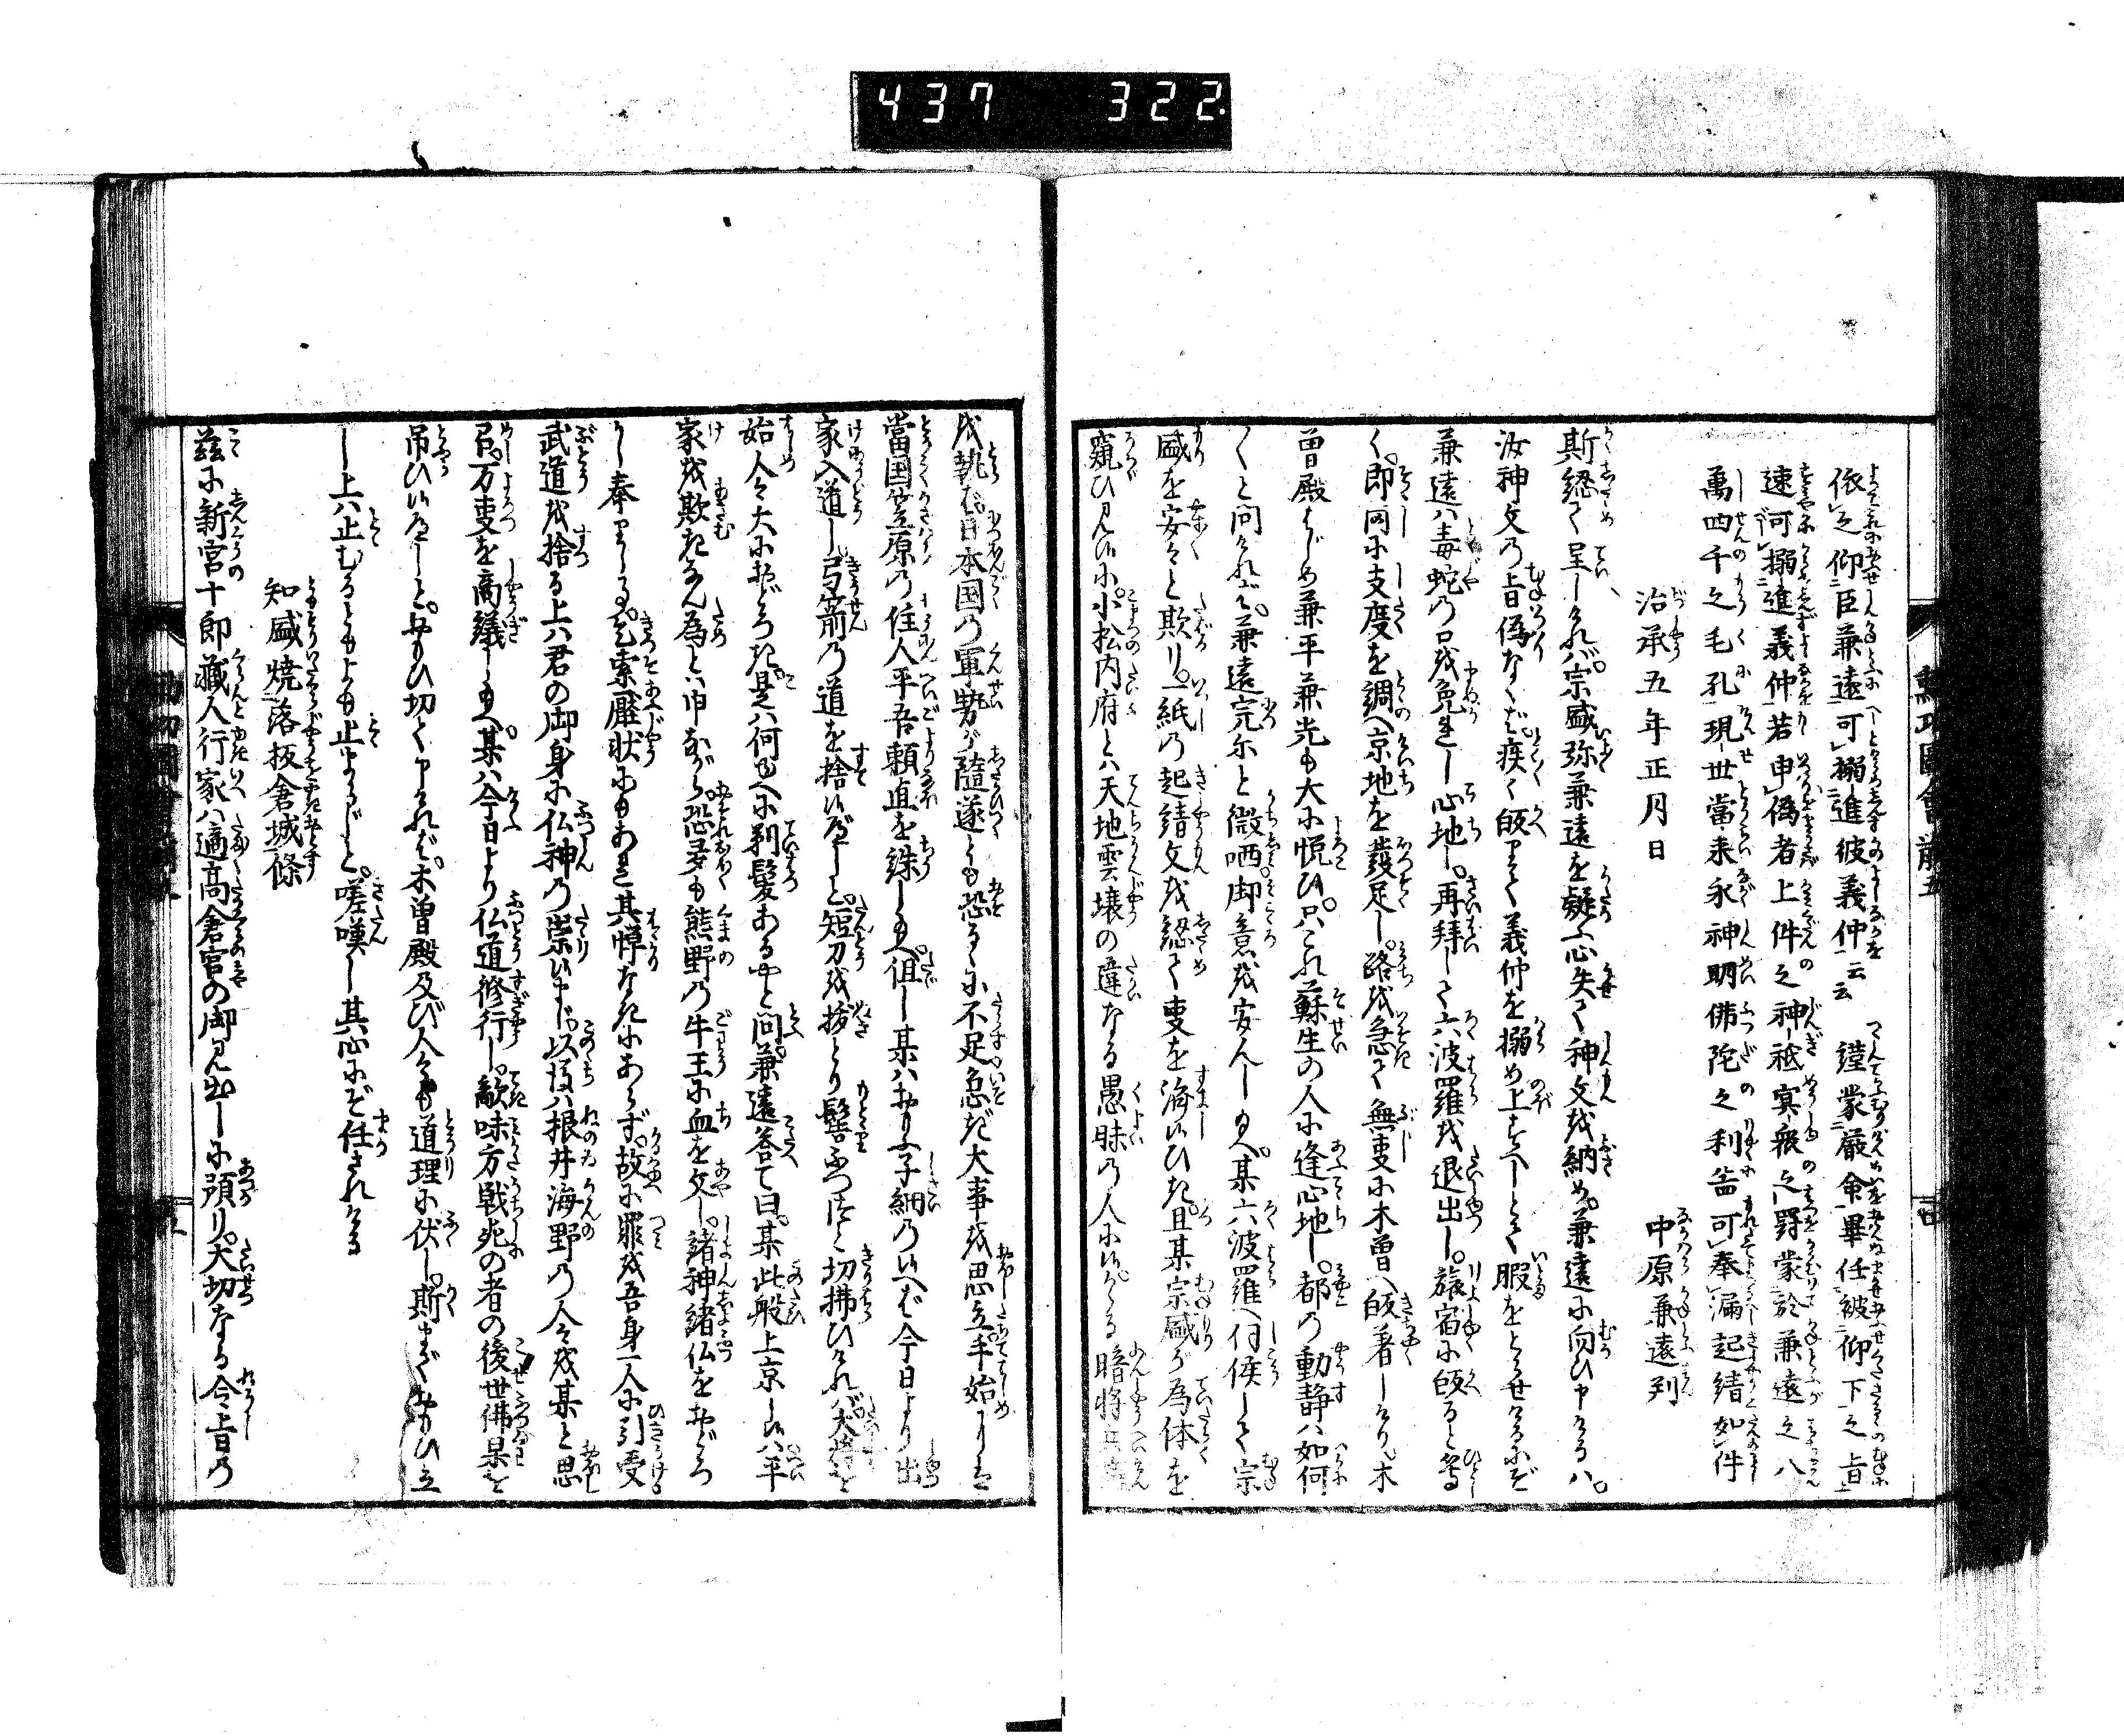 437 322
依之仰臣兼遠可搦進彼義仲云云謹蒙厳命畢任被仰下之旨
速可搦進義仲若申偽者上件之神祇冥衆之罸蒙於兼遠之八
萬四千之毛孔現世當来永神明佛陀之利益可奉漏起請如件
治承五年正月日
中原兼遠判
斯認て呈しければ。宗盛弥兼遠を疑ふ心失て神文を納め。兼遠に向ひ申けるハ。
汝神文の旨偽なくバ疾く皈りて義仲を搦め上すべしとて暇をとらせけるにぞ
兼遠ハ毒蛇の口を免れし心地し。再拝して六波羅を退出し。旅宿に皈ると等し
く。即同に支度を調へ京地を發足し。路を急て無事に木曽へ皈着しけり。木
曽殿はじめ兼平兼光も大に悦び。只これ蘇生の人に逢心地し。都の動静ハ如何
〱と問ければ。兼遠完尓と微哂御意を安んじ給へ。某六波羅へ伺候して宗
盛を安々と欺り。一紙の起請文を認て事を済し候ひき。且某宗盛が為体を
窺ひ見候に。小松内府とハ天地雲壌の違なる愚昧の人に候。かゝる暗将
を執バ。日本国の軍勢が隨遂とも恐るゝに不足。急ぎ大事を思立。手始には
當国笠原の住人平吾頼直を誅し給へ。但し某ハおもふ子細の候へば今日より出
家入道し弓箭の道を捨候べしと。短刀を抜とり髻ふつ〻と切拂ひければ。木曽を
始人々大におどろき。是ハ何ゆへに剃髪あるやと問。兼遠答て曰。某此般上京しハ平
家を欺きなん為とハ申ながら。恐多も熊野の牛王に血を文し。諸神諸仏をおどろ
かし奉りしる。乞索壓状にもあれ其憚なきにあらず。故に罪を吾身一人に引受
武道を捨る上ハ君の御身に仏神の祟候まじ。以後ハ根井海野の人々を某と思
召。万事を商議し給へ。某ハ今日より仏道修行し。敵味方戦死の者の後世佛果を
吊ひ候べしと。おもひ切て申ければ。木曽殿及び人々も道理に伏し。斯までおもひ立
し上ハ止むるともよも止まらじと。嗟嘆し其心にぞ任されける
知盛焼落板倉城條
茲に新宮十郎藏人行家ハ適高倉宮の御見出しに預り。大切なる令旨の